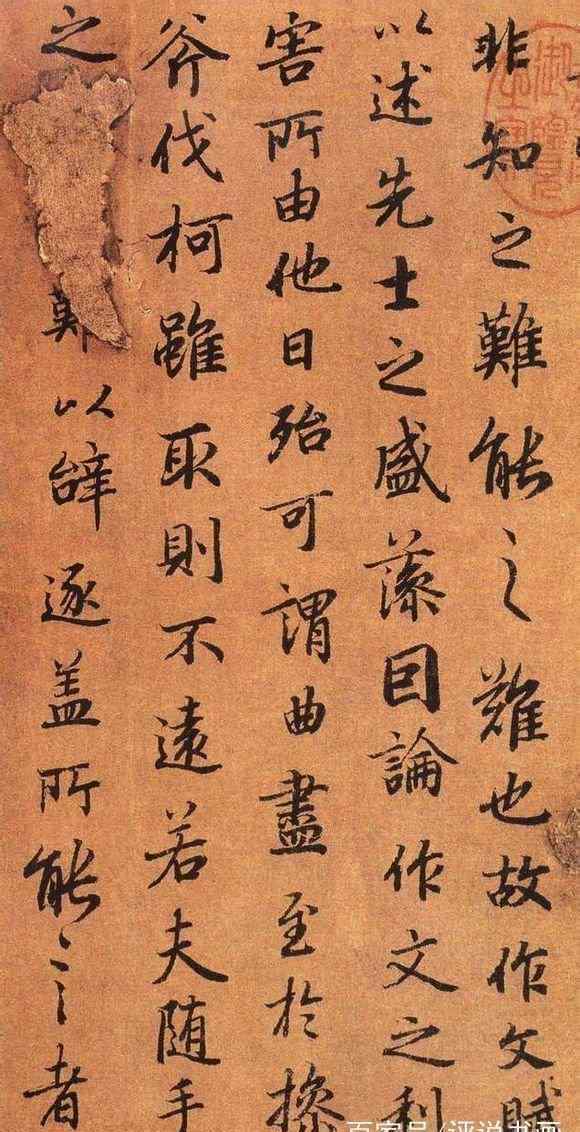 非知之難能之難也故作文賦
以述先士之盛藻因論作文之利
害所由他日殆可謂曲盡至於操
斧伐柯雖取則不遠若夫随手
之難以辝逐盖所能言者
百家号/评说书画